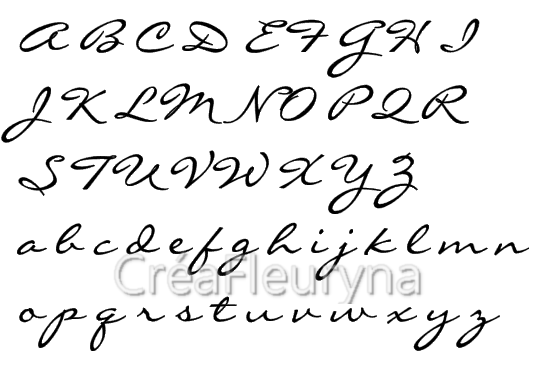 A B C D E F G H I
J K L M N O P Q R
S T U V W X Y Z
a b c d e f g h i j k l m n
CréaFleuryna
o p q r s t u v w x y z